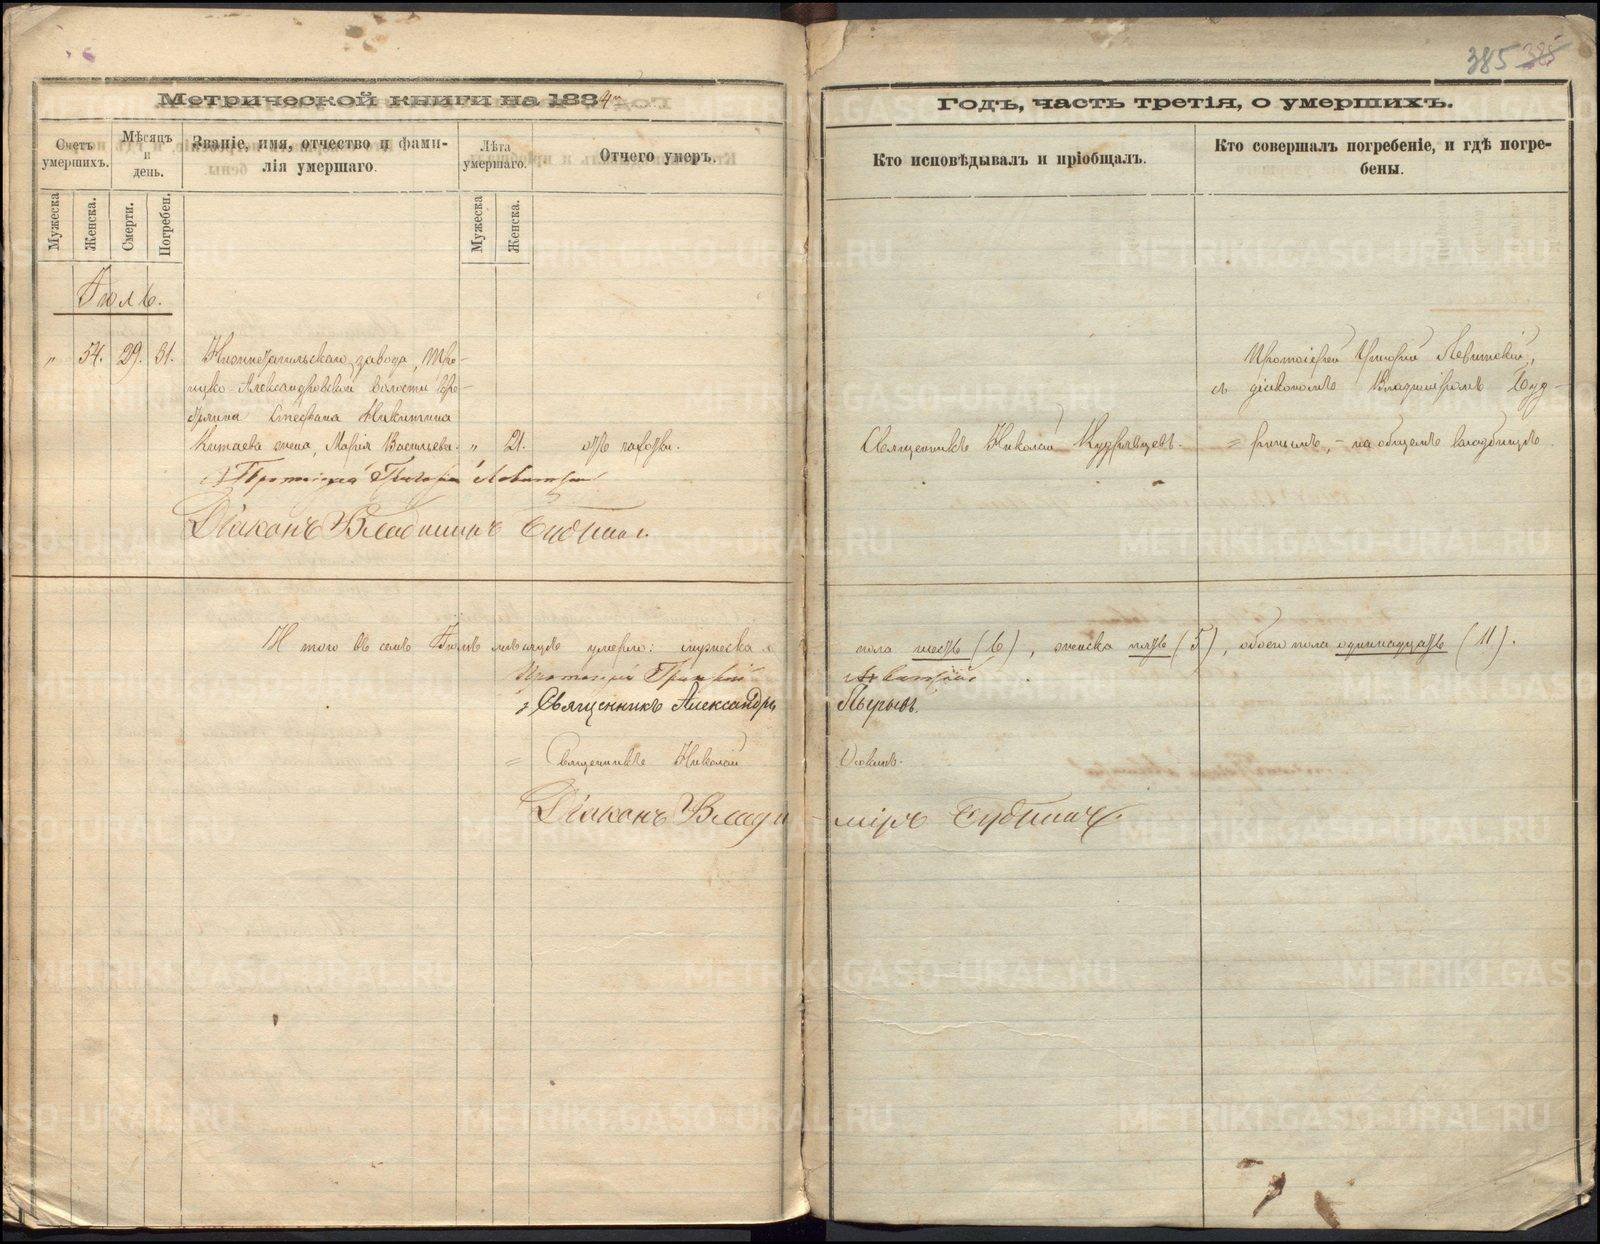 385 385
Метрической книги на 1884
Годъ, часть третія, о умершихъ.
Счетъ умершихъ.
Мѣсяцъ и день.
Званіе, имя, отчество и фами-
лія умершаго.
Лѣта умершаго.
Отчего умеръ.
Кто исповѣдывалъ и пріобщалъ.
Кто совершалъ погребеніе, и гдѣ погре-
бены.
Мужеска
Женска.
Смерти.
Погребен.
Мужеска
Женска.
Іюль.
" 54. 29. 31. Нижнетагильскаго завода, Тро-
ицко-Александровской волости
Стефана Никитина
Китаева жена, Марія Васильева. " 21. отъ чахотки.
Священникъ Николай Кудрявцевъ.
Протоіерей Григорій Левитскій,
съ діакономъ Владиміромъ Буд-
= ринымъ, - на общемъ кладбищѣ
Протоіерей Григорій Левитскій
Діаконъ Владиміръ Будринъ.
Итого въ семъ Іюлѣ мѣсяцѣ умерло: мужеска пола шесть (6), женска пять (5), обоего пола одиннадцать (11).
Протоіерей Григорій Левитскій
Священникъ Александръ
Священникъ Николай
Діаконъ Влади-міръ Будринъ.
METRIKI.GASO-URAL.RU